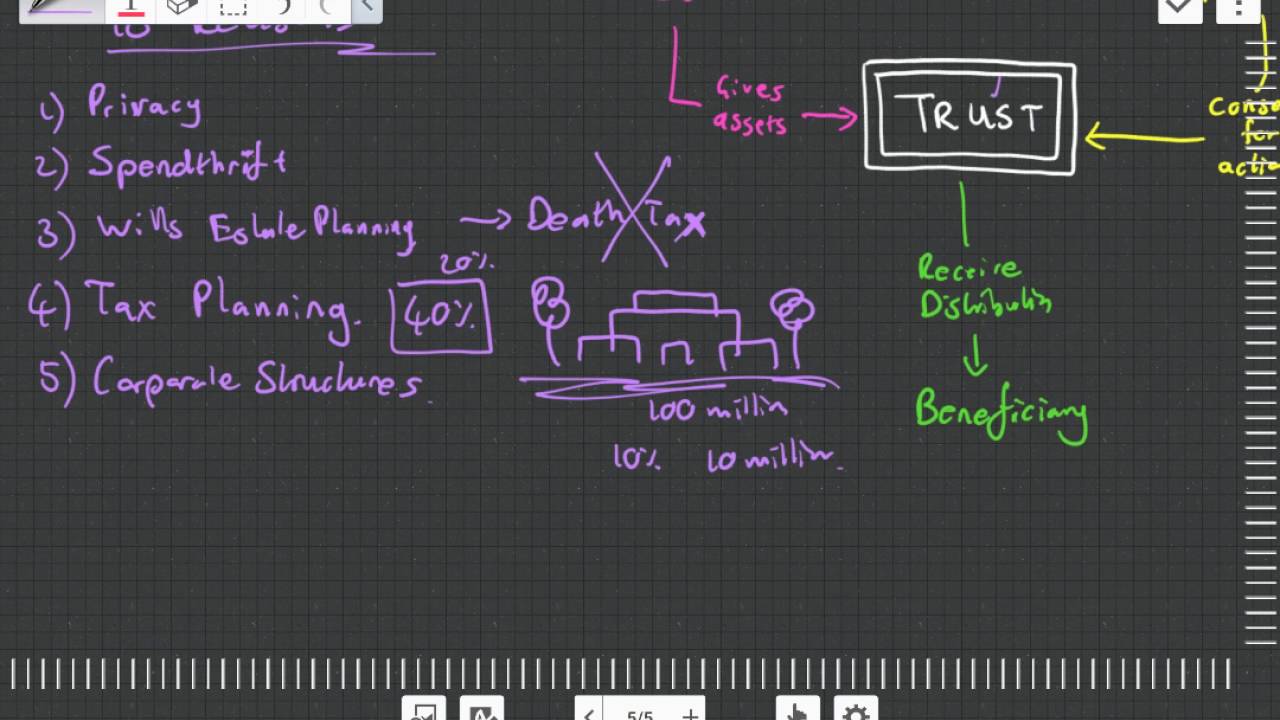 1) Privacy
2) Spendthrift
3) Wills Estate Planning → Death Tax
4) Tax Planning.
20%
40%
5) Corporate Structures.
100 million
10% 10 million.
Gives
assets
TRUST
for
Receive
Distribution
Beneficiary
5/5